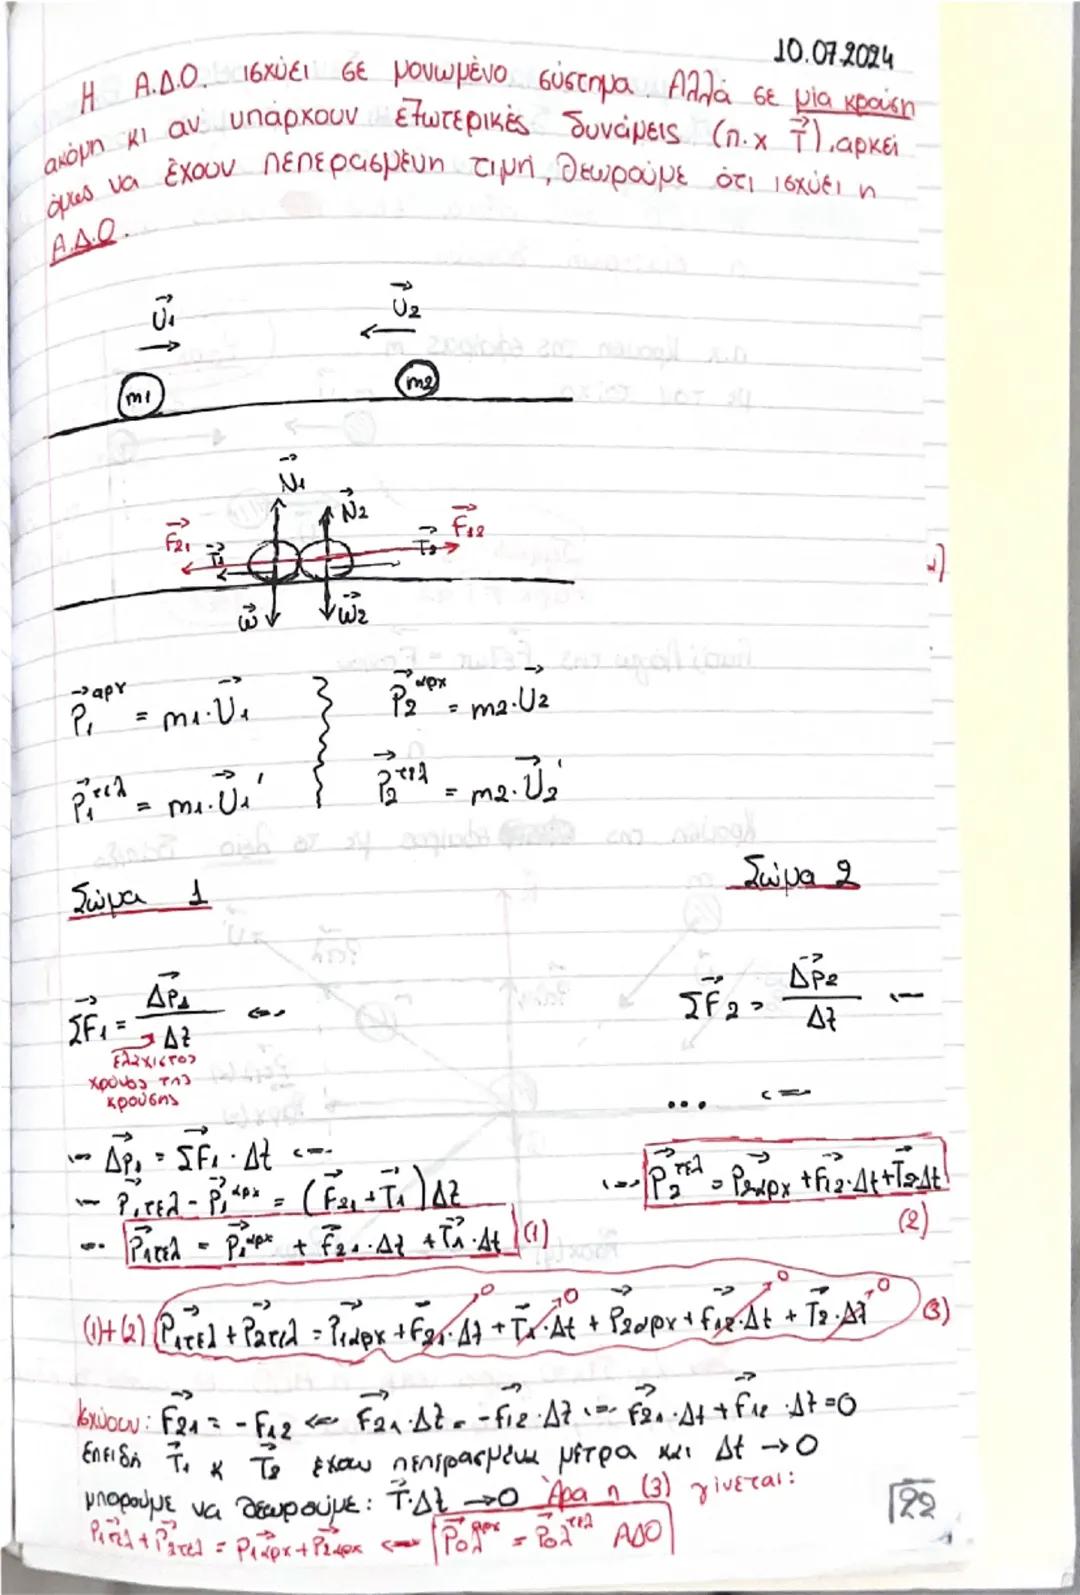 10.07.2024
Η Α.Δ.Ο. ισχύει σε μονωμένο σύστημα. Αλλά σε μία κρούση
ακόμη κι αν υπάρχουν εξωτερικές δυνάμεις (π.χ T⃗), αρκεί
όμως να έχουν πεπερασμένη τιμή, θεωρούμε ότι ισχύει η
Α.Δ.Ο.
U⃗₁ U⃗₂
m₁ m₂
N⃗₁ N⃗₂
F⃗₂₁ T⃗₁ T⃗₂ F⃗₁₂
w⃗ w⃗₂
P⃗₁^αρχ = m₁·U⃗₁ P⃗₂^αρχ = m₂·U⃗₂
P⃗₁^τελ = m₁·U⃗₁' P⃗₂^τελ = m₂·U⃗₂'
Σώμα 1 Σώμα 2
ΣF⃗₁ = Δp⃗₁/Δt <=> ΣF⃗₂ = Δp⃗₂/Δt <=>
ελάχιστος
χρόνος της
κρούσης
... <=>
<=> Δp⃗₁ = ΣF⃗₁·Δt <=>
<=> P⃗₁τελ - P⃗₁^αρχ = (F⃗₂₁ + T⃗₁)Δt
<=> P⃗₁τελ = P⃗₁^αρχ + F⃗₂₁·Δt + T⃗₁·Δt (1)
<=> P⃗₂^τελ = P⃗₂αρχ + F⃗₁₂·Δt + T⃗₂·Δt
(2)
(1)+(2) P⃗₁τελ + P⃗₂τελ = P⃗₁αρχ + F⃗₂₁·Δt 0 + T⃗₁·Δt 0 + P⃗₂αρχ + F⃗₁₂·Δt 0 + T⃗₂·Δt 0 (3)
Ισχύουν: F⃗₂₁ = -F⃗₁₂ <=> F⃗₂₁·Δt = -F⃗₁₂·Δt <=> F⃗₂₁·Δt + F⃗₁₂·Δt = 0
επειδή T⃗₁ κ T⃗₂ έχουν πεπερασμένα μέτρα και Δt → 0
μπορούμε να θεωρούμε: T⃗·Δt → 0 Άρα η (3) γίνεται:
P⃗₁τελ + P⃗₂τελ = P⃗₁αρχ + P⃗₂αρχ <=> P⃗ολ^αρχ = P⃗ολ^τελ ΑΔΟ
22